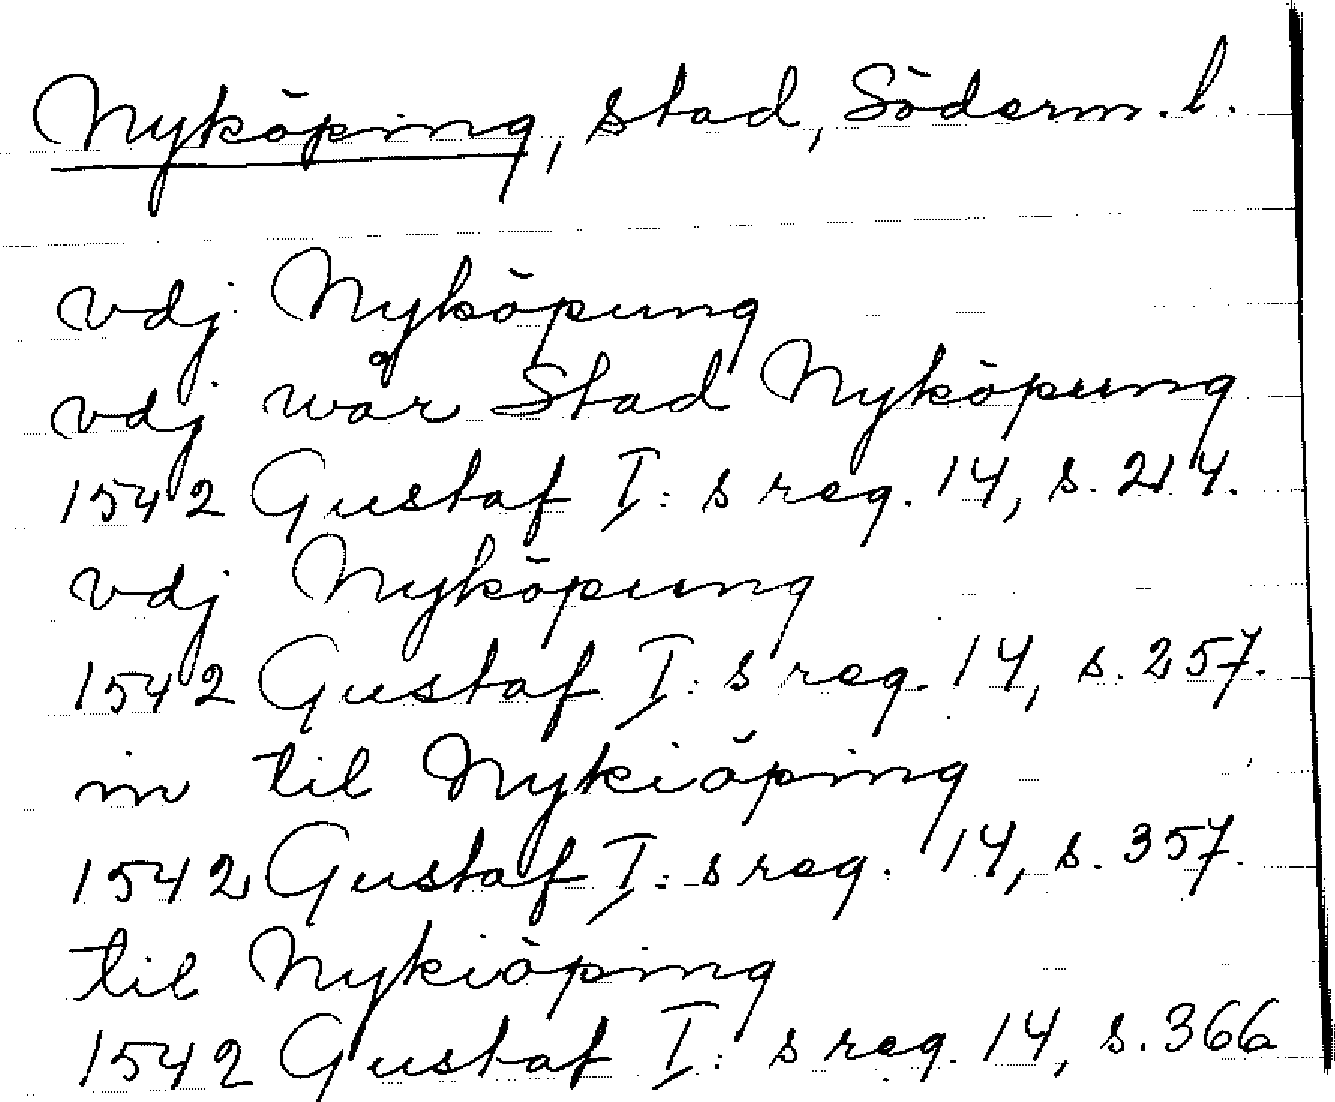 Nyköping, stad, Söderm. l.
vdj Nyköpung
vdj wår Stad Nyköpung
1542 Gustaf I: s reg. 14, s. 214.
vdj Nyköpung
1542 Gustaf I: s reg. 14, s. 257.
in til Nykiöping
1542 Gustaf I: s reg. 14, s. 357.
til Nykiöping
1542 Gustaf I: s reg. 14, s. 366